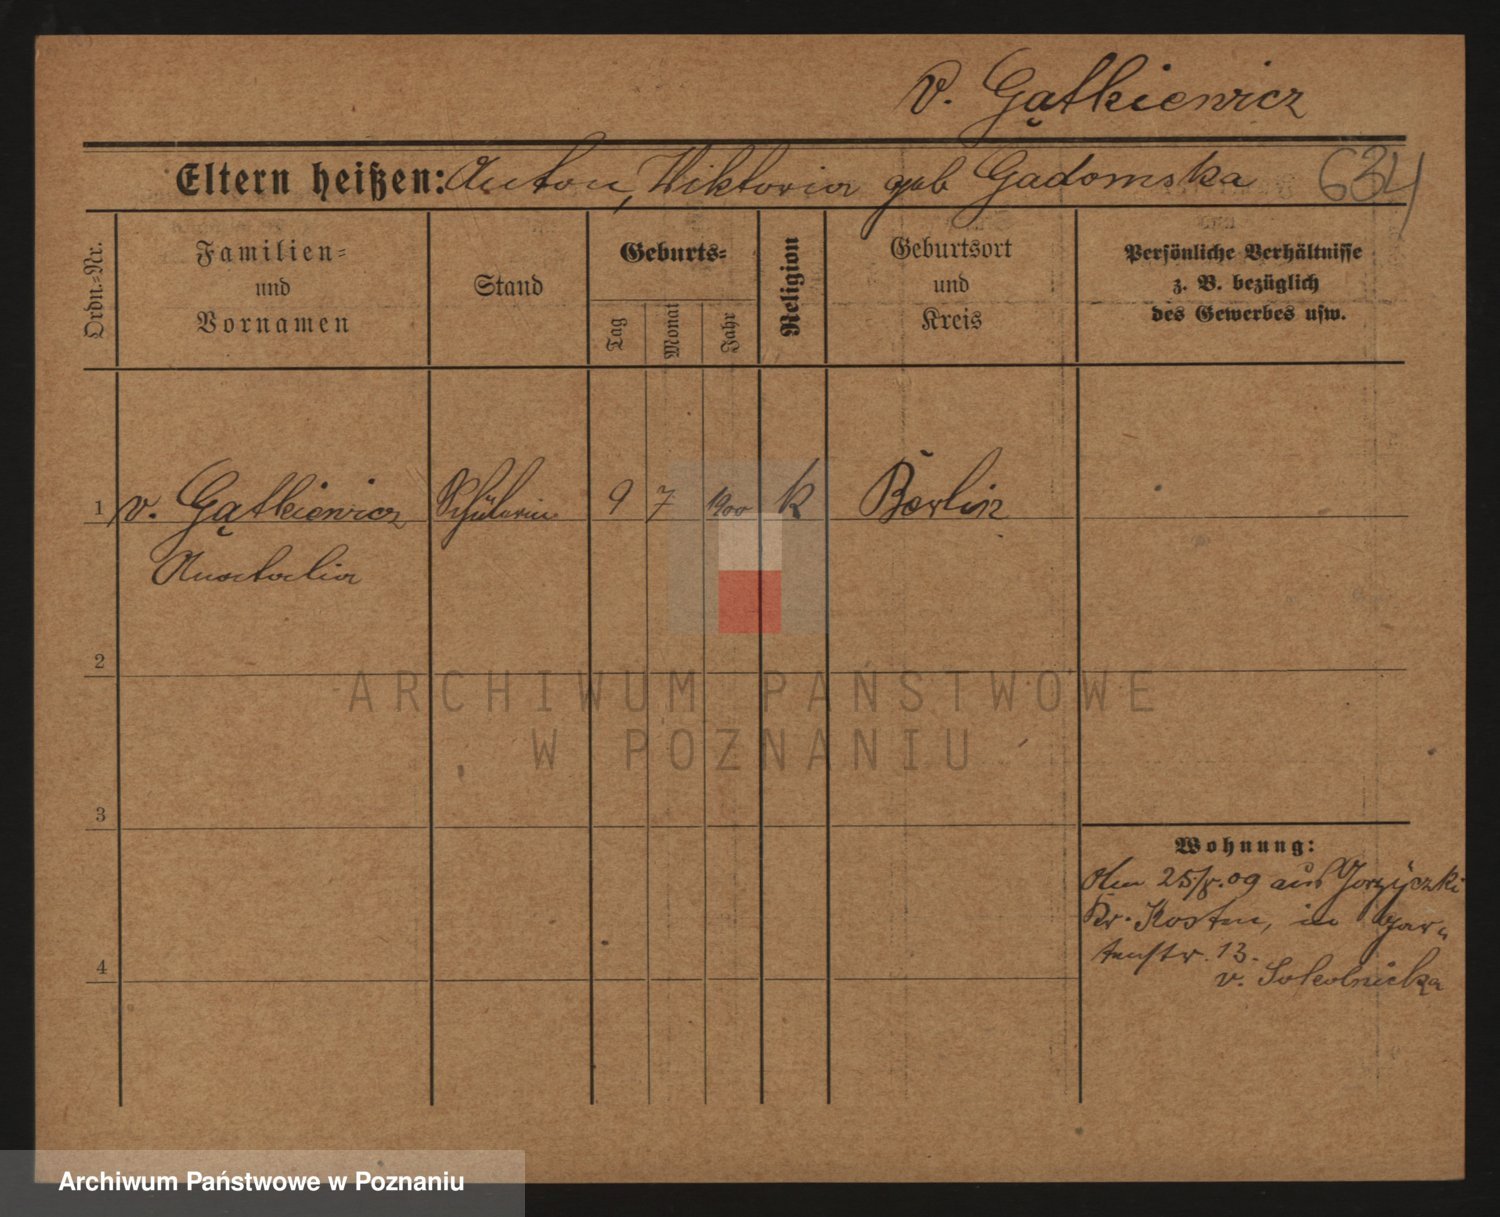 v. Gątkiewicz
Eltern heißen: Anton, Wiktoria geb Gadomska 634
Ordn.-Nr.
Familien-
und
Vornamen
Stand
Geburts-
Tag
Monat
Jahr
Religion
Geburtsort
und
Kreis
Persönliche Verhältnisse
z. B. bezüglich
des Gewerbes usw.
1 v. Gątkiewicz Schülerin 9 7 1900 K Berlin
2
3
4
Wohnung:
25/8.09 aus Gorzyczki
Kr. Kosten, in Gar-
tenstr. 13.
v. Sokolnicka
ARCHIWUM PAŃSTWOWE
W POZNANIU
Archiwum Państwowe w Poznaniu